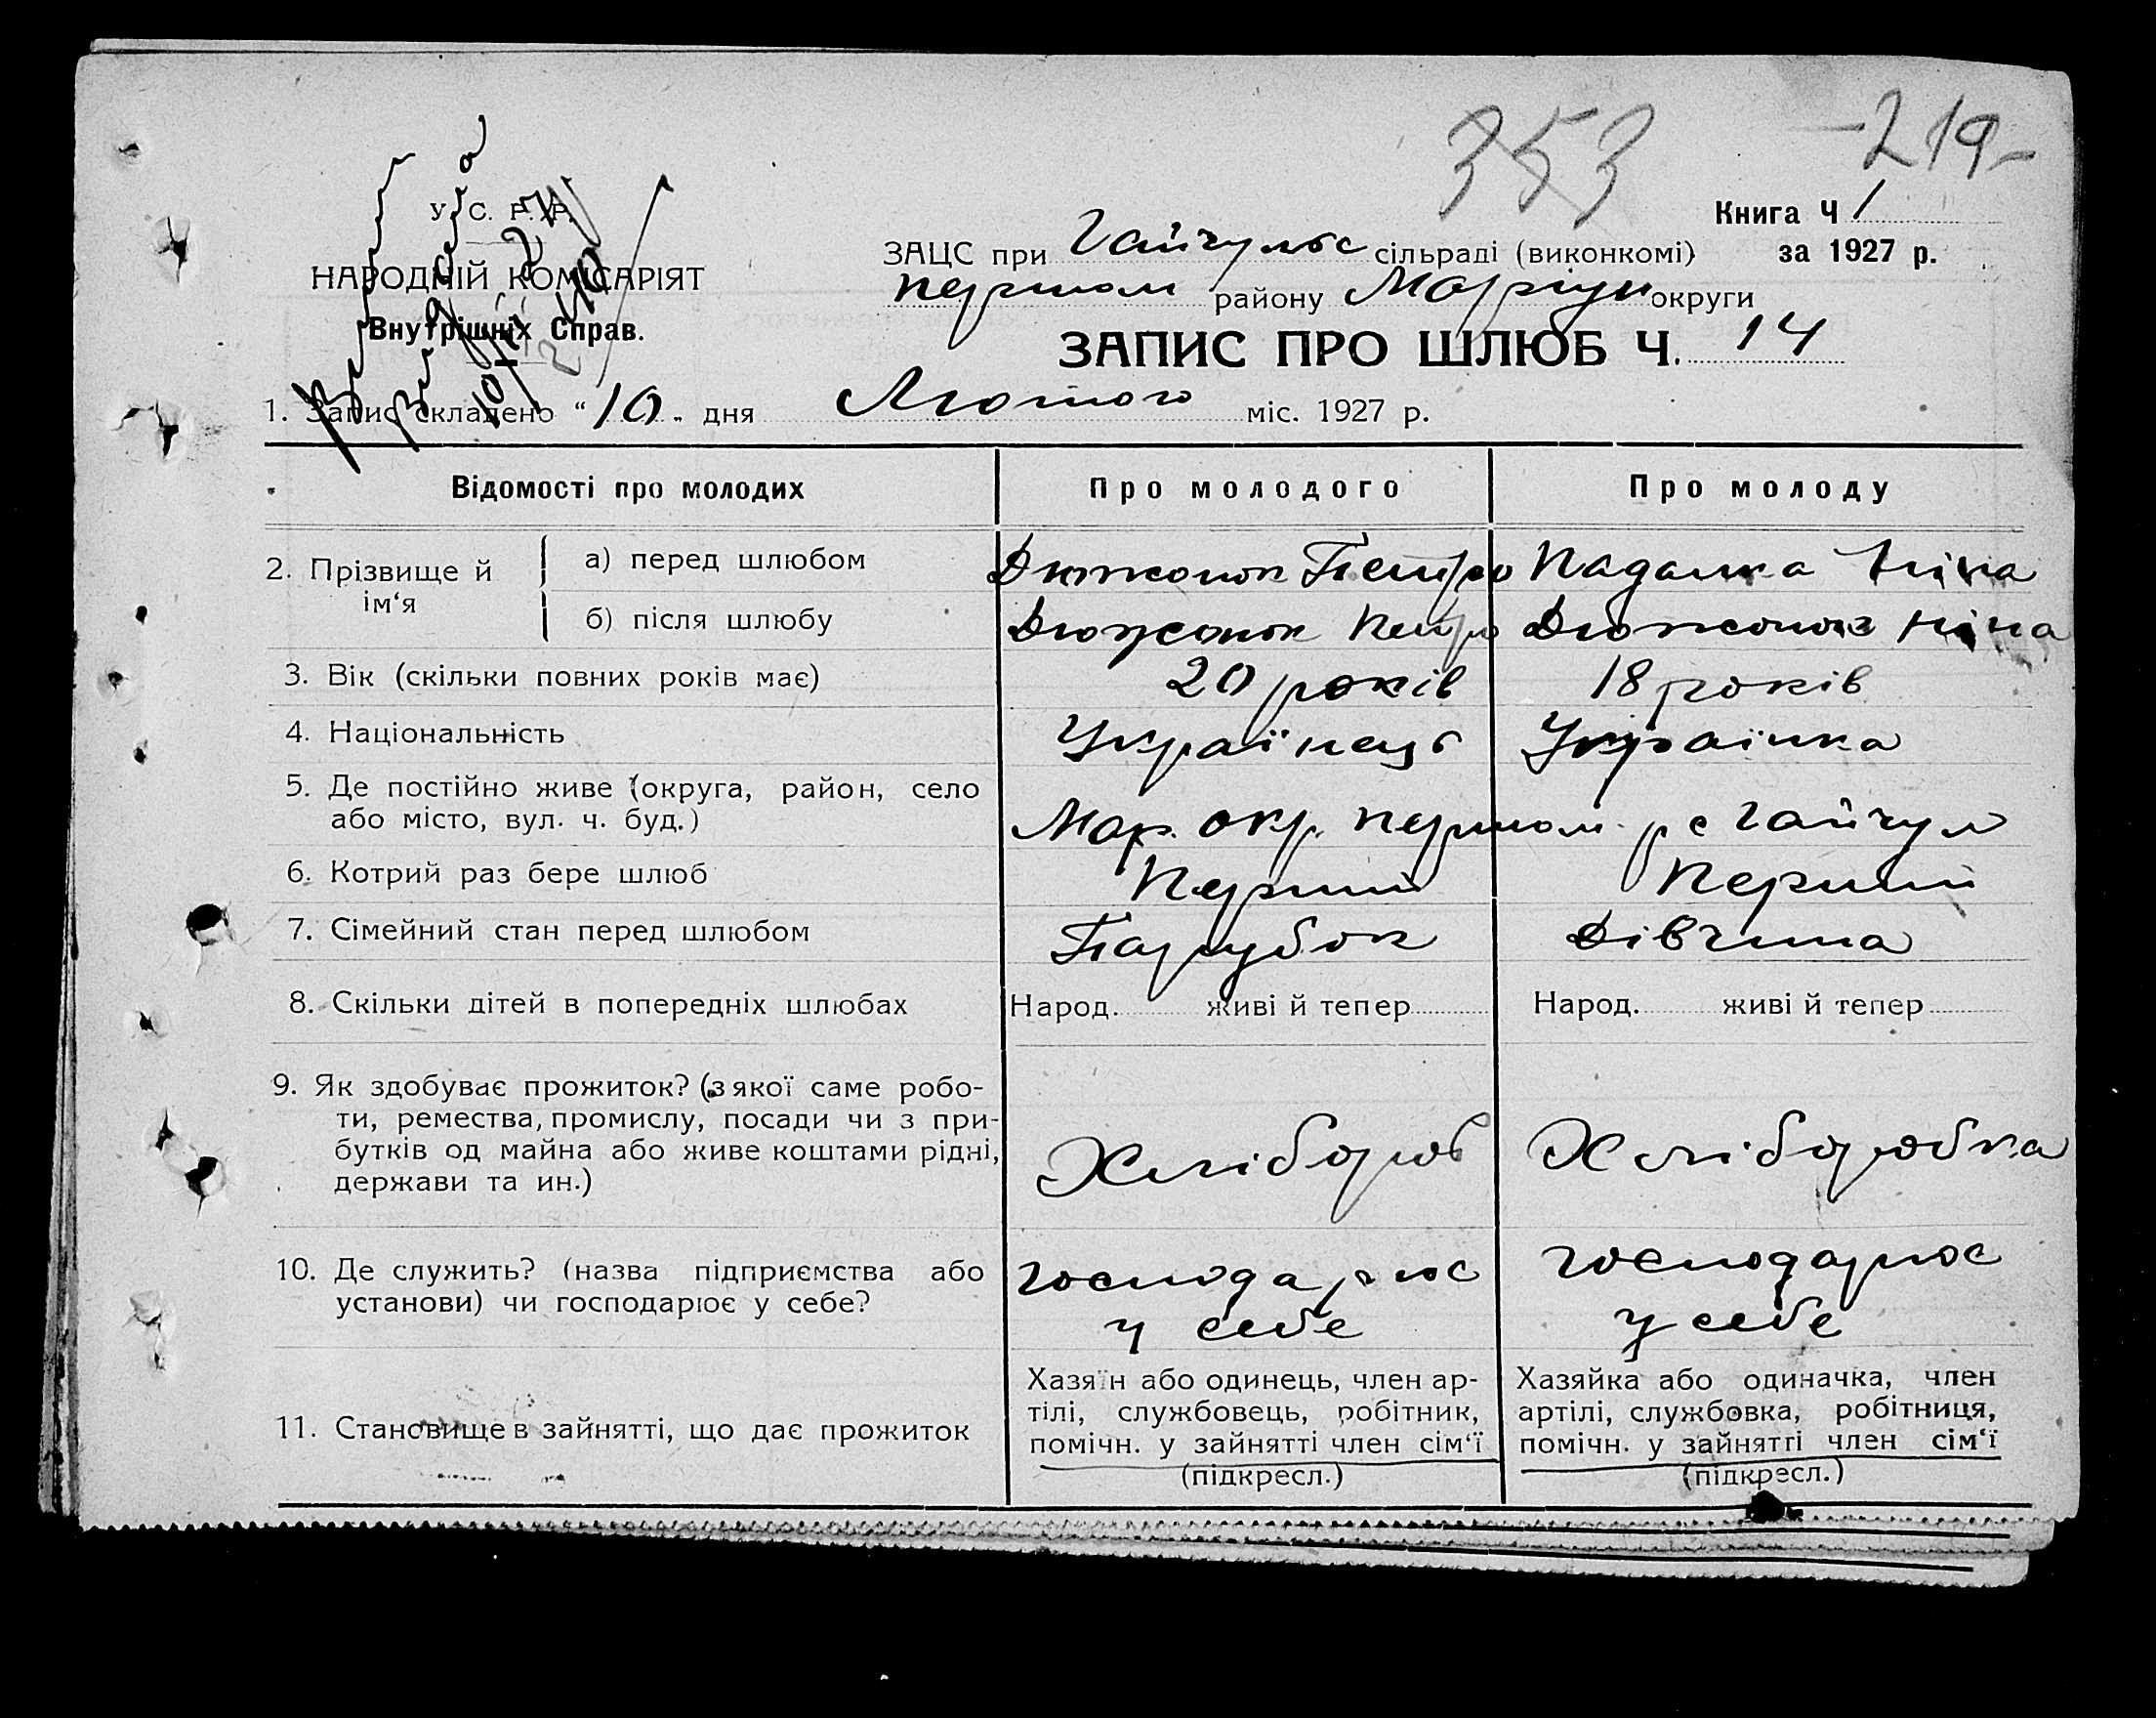 353
-219-
У. С. Р. Р.
НАРОДНІЙ КОМІСАРІЯТ
Внутрішніх Справ.
Книга Ч 1
за 1927 р.
ЗАЦС при Гайчульс сільраді (виконкомі)
першом району Маріуп округи
ЗАПИС ПРО ШЛЮБ Ч. 14
1. Запис складено "10" дня Лютого міс. 1927 р.
Відомості про молодих Про молодого Про молоду
2. Прізвище й ім‘я
а) перед шлюбом Дюжонок Петро Падалка Ніна
б) після шлюбу Дюжонок Петро Дюжонок Ніна
3. Вік (скільки повних років має) 20 років 18 років
4. Національність Українець Українка
5. Де постійно живе (округа, район, село
або місто, вул. ч. буд.) Мар. окр. першом. р с Гайчул
6. Котрий раз бере шлюб Перший Перший
7. Сімейний стан перед шлюбом Парубок Дівчина
8. Скільки дітей в попередніх шлюбах Народ. живі й тепер Народ. живі й тепер
9. Як здобуває прожиток? (з якої саме робо-
ти, ремества, промислу, посади чи з при-
бутків од майна або живе коштами рідні,
держави та ин.) Хлібороб Хліборобка
10. Де служить? (назва підприємства або
установи) чи господарює у себе?
господарює
у себе
господарює
у себе
11. Становище в зайнятті, що дає прожиток
Хазяїн або одинець, член ар-
тілі, службовець, робітник,
помічн. у зайнятті член сім‘ї
(підкресл.)
Хазяйка або одиначка, член
артілі, службовка, робітниця,
помічн. у зайнятті член сім‘ї
(підкресл.)